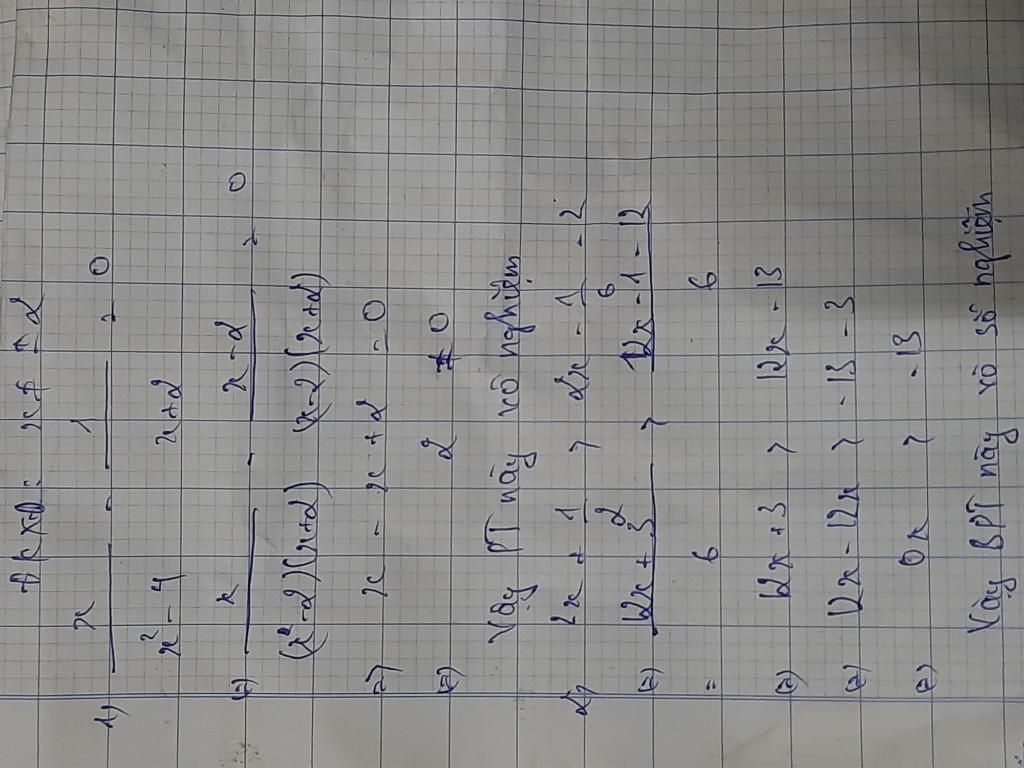 ĐKXĐ: x ≠ ± 2
1, x/(x² - 4) - 1/(x+2) = 0
(=) x/((x-2)(x+2)) - (x-2)/((x-2)(x+2)) = 0
=) x - x + 2 = 0
(=) 2 ≠ 0
Vậy PT này vô nghiệm
2, 2x + 1/2 > 2x - 1/6 - 2
(=) (12x + 3)/6 > (12x - 1 - 12)/6
(=) 12x + 3 > 12x - 13
(=) 12x - 12x > -13 - 3
(=) 0x > -13
Vậy BPT này vô số nghiệm